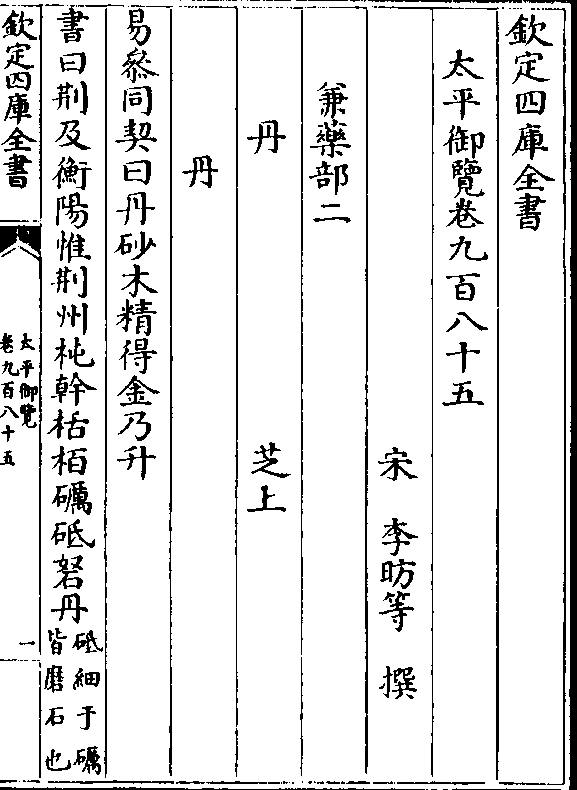 欽定四庫全書
太平御覽卷九百八十五
宋 李昉等 撰
兼藥部二
丹 芝上
丹
易叅同契曰丹砂木精得金乃升
書曰荆及衡陽惟荆州杶幹栝栢礪砥砮丹
砥細于礪
皆磨石也
欽定四庫全書
太平御覽
卷九百八十五
一